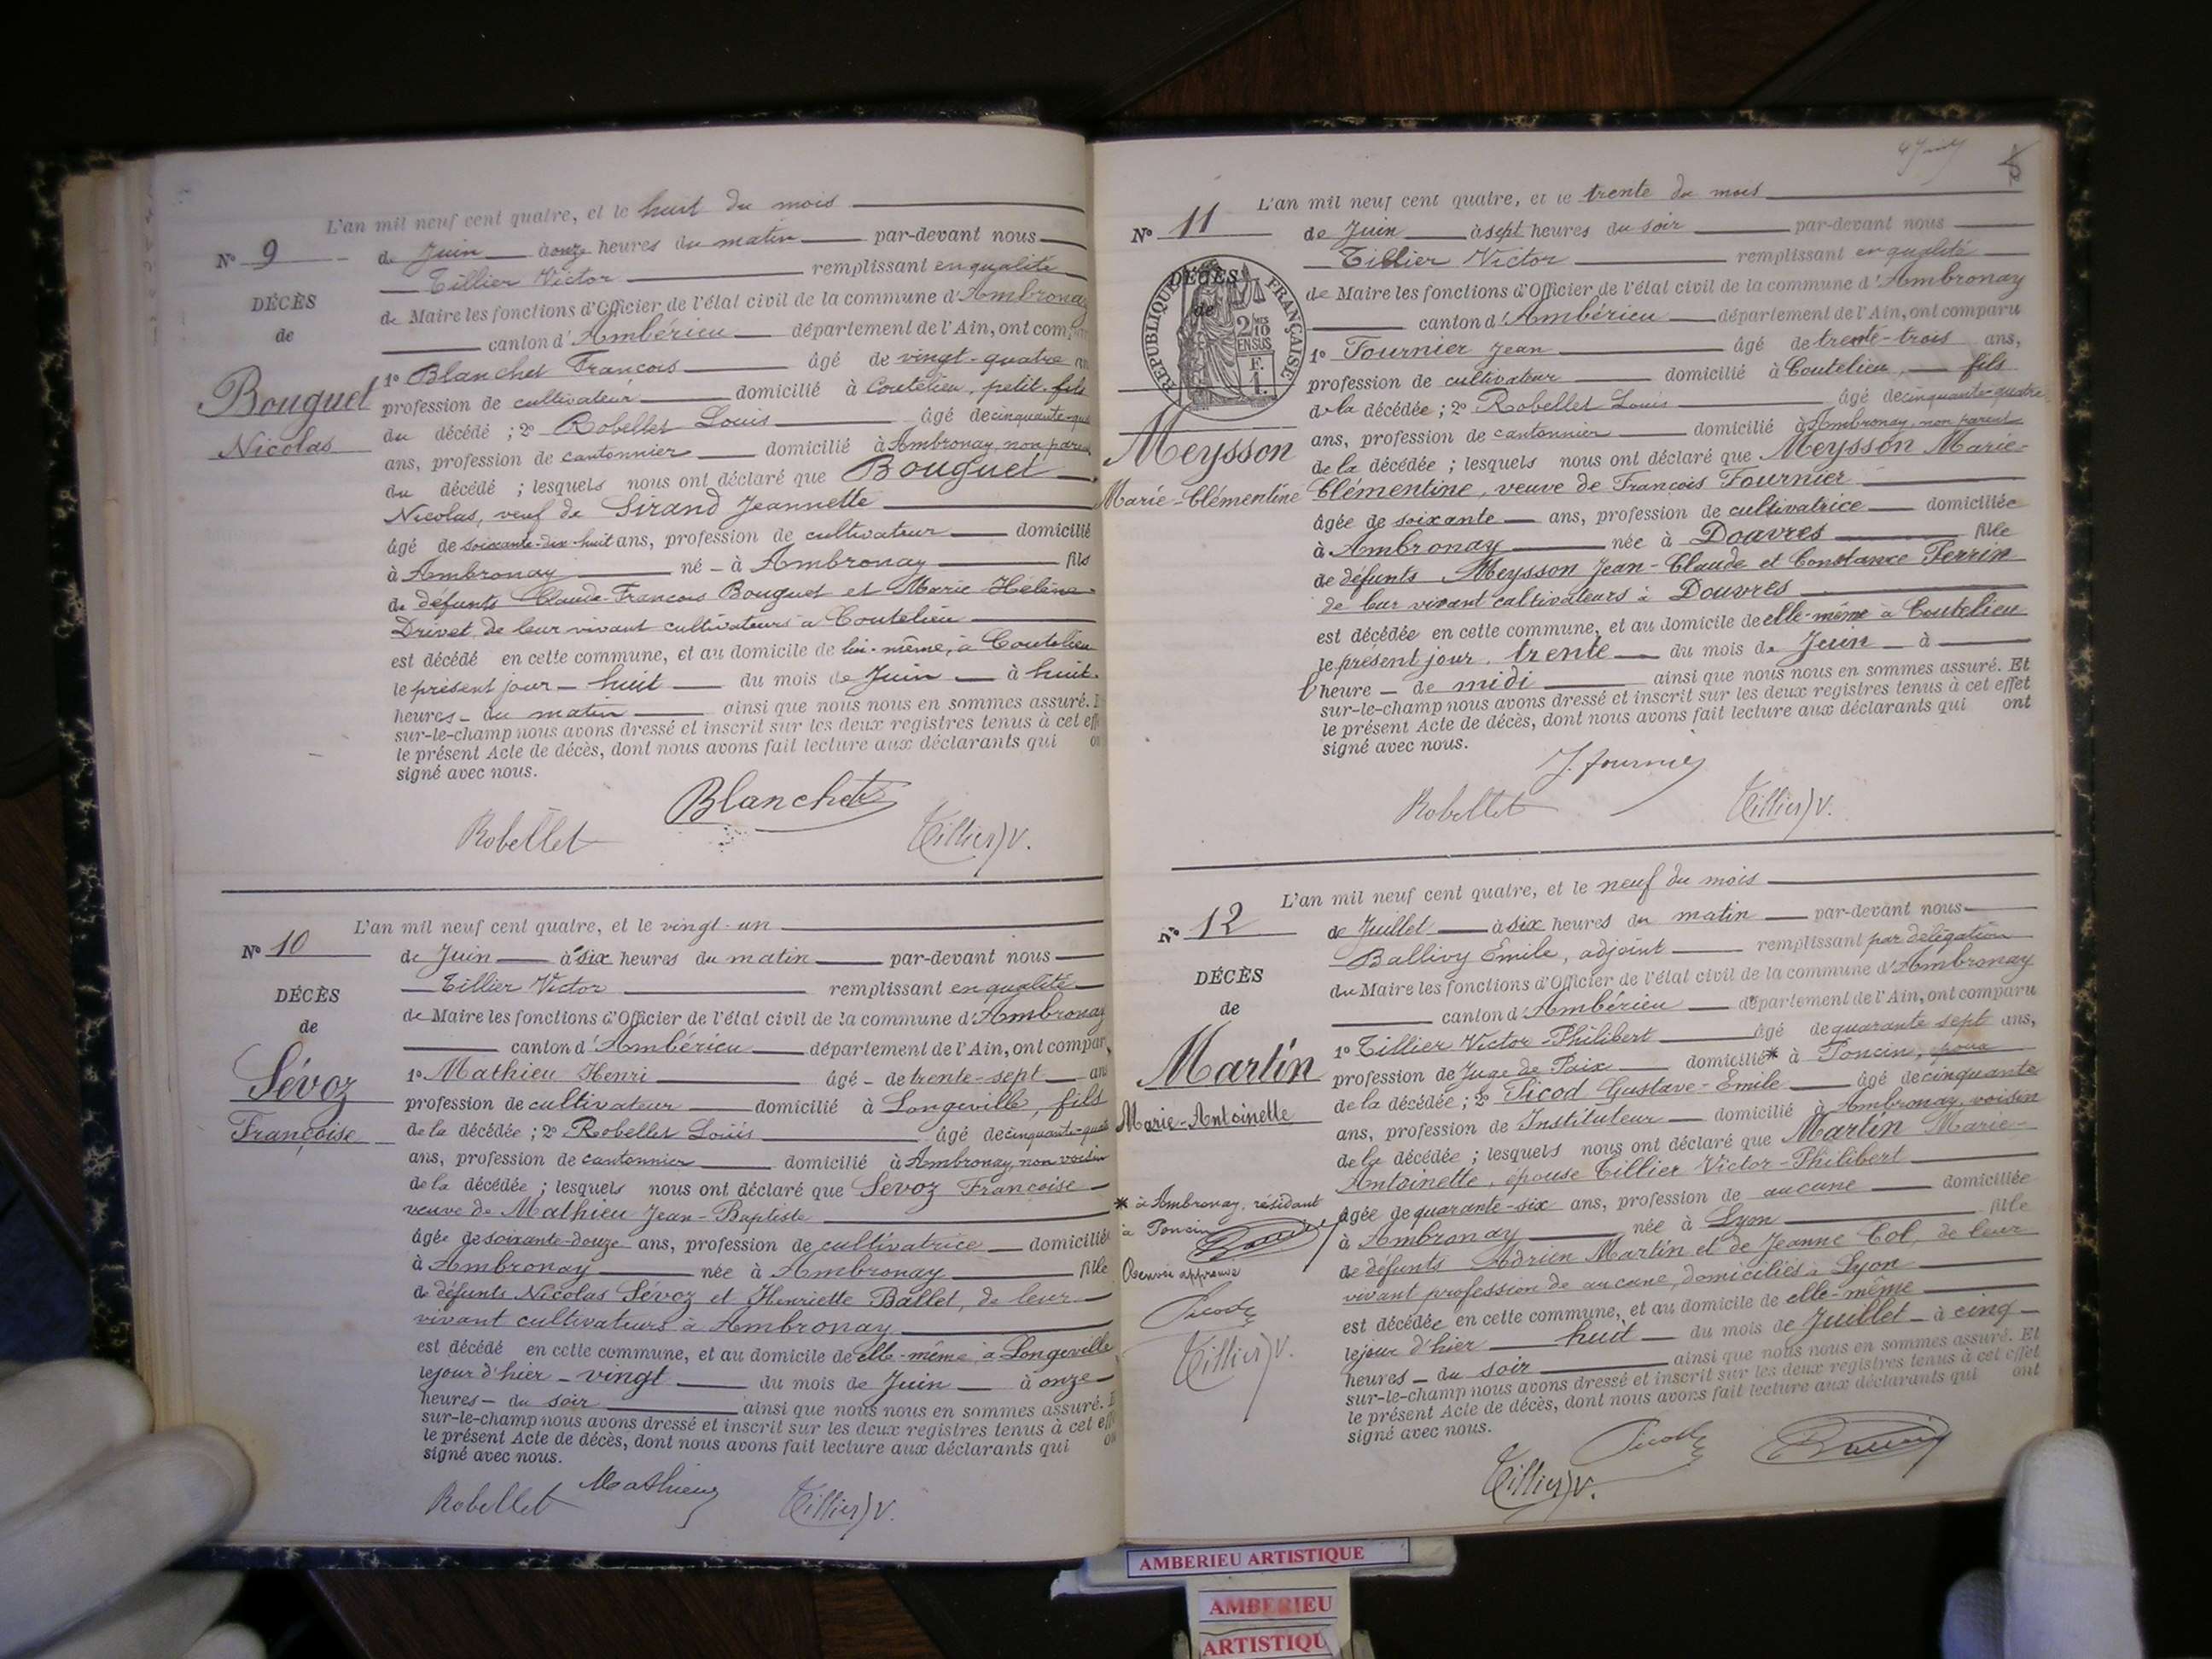 L'an mil neuf cent quatre, et le huit du mois
N° 9 de Juin à onze heures du matin par-devant nous
Tillier Victor remplissant en qualité
DÉCÈS
de Maire les fonctions d'Officier de l'état civil de la commune d'Ambronay
de
canton d'Ambérieu département de l'Ain, ont comp
1° Blanchet François âgé de vingt-quatre
Bouguet
profession de cultivateur domicilié à Coutelieu, petit-fils
du décédé ; 2° Robellet Louis âgé de cinquante-qua
Nicolas
ans, profession de cantonnier domicilié à Ambronay, non paren
du décédé ; lesquels nous ont déclaré que Bouguet
Nicolas, veuf de Sirand Jeannette
âgé de soixante-dix-huit ans, profession de cultivateur domicilié
à Ambronay né à Ambronay fils
de défunts Claude François Bouguet et Marie Hélène
Drivet, de leur vivant cultivateurs à Coutelieu
est décédé en cette commune, et au domicile de lui-même, à Coutelieu
le présent jour huit du mois de Juin à huit
heures du matin ainsi que nous nous en sommes assuré. E
sur-le-champ nous avons dressé et inscrit sur les deux registres tenus à cet eff
le présent Acte de décès, dont nous avons fait lecture aux déclarants qui on
signé avec nous.
Blanchet
Robellet Tillier V.
L'an mil neuf cent quatre, et le vingt-un
N° 10 de Juin à six heures du matin par-devant nous
Tillier Victor remplissant en qualité
DÉCÈS
de Maire les fonctions d'Officier de l'état civil de la commune d'Ambronay
de
canton d'Ambérieu département de l'Ain, ont compar
Sévoz
1° Mathieu Henri âgé de trente-sept an
profession de cultivateur domicilié à Longeville, fils
Françoise
de la décédée ; 2° Robellet Louis âgé de cinquante-quat
ans, profession de cantonnier domicilié à Ambronay, non voisin
de la décédée ; lesquels nous ont déclaré que Sévoz Françoise
veuve de Mathieu Jean-Baptiste
âgée de soixante-douze ans, profession de cultivatrice domiciliée
à Ambronay née à Ambronay fille
de défunts Nicolas Sévoz et Henriette Ballet, de leur
vivant cultivateurs à Ambronay
est décédé en cette commune, et au domicile de elle-même, à Longeville
le jour d'hier vingt du mois de Juin à onze
heures du soir ainsi que nous nous en sommes assuré. E
sur-le-champ nous avons dressé et inscrit sur les deux registres tenus à cet eff
le présent Acte de décès, dont nous avons fait lecture aux déclarants qui on
signé avec nous.
Robellet Mathieu Tillier V.
L'an mil neuf cent quatre, et le trente du mois
N° 11 de Juin à sept heures du soir par-devant nous
Tillier Victor remplissant en qualité
DÉCÈS
de
RÉPUBLIQUE FRANÇAISE
2 10
EN SUS
F.
1.
de Maire les fonctions d'Officier de l'état civil de la commune d'Ambronay
canton d'Ambérieu département de l'Ain, ont comparu
1° Fournier Jean âgé de trente-trois ans,
profession de cultivateur domicilié à Coutelieu, fils
de la décédée ; 2° Robellet Louis âgé de cinquante-quatre
Meysson
ans, profession de cantonnier domicilié à Ambronay, non parent
de la décédée ; lesquels nous ont déclaré que Meysson Marie-
Marie-Clémentine
Clémentine, veuve de François Fournier
âgée de soixante ans, profession de cultivatrice domiciliée
à Ambronay née à Douvres fille
de défunts Meysson Jean-Claude et Constance Perrin
de leur vivant cultivateurs à Douvres
est décédée en cette commune, et au domicile de elle-même à Coutelieu
le présent jour, trente du mois de Juin à
l'heure de midi ainsi que nous nous en sommes assuré. Et
sur-le-champ nous avons dressé et inscrit sur les deux registres tenus à cet effet
le présent Acte de décès, dont nous avons fait lecture aux déclarants qui ont
signé avec nous.
J. Fournier
Robellet Tillier V.
L'an mil neuf cent quatre, et le neuf du mois
N° 12 de Juillet à six heures du matin par-devant nous
Ballivy Emile, adjoint remplissant par délégation
DÉCÈS
du Maire les fonctions d'Officier de l'état civil de la commune d'Ambronay
de
canton d'Ambérieu département de l'Ain, ont comparu
1° Tillier Victor-Philibert âgé de quarante sept ans,
Martin
profession de Juge de Paix domicilié* à Poncin, époux
de la décédée ; 2° Picod Gustave-Emile âgé de cinquante
Marie-Antoinette
ans, profession de Instituteur domicilié à Ambronay, voisin
de la décédée ; lesquels nous ont déclaré que Martin Marie-
Antoinette, épouse Tillier Victor-Philibert
* à Ambronay, résidant
à Poncin
Renvoi approuvé
Picod
Tillier V.
âgée de quarante-six ans, profession de aucune domiciliée
à Ambronay née à Lyon fille
de défunts Adrien Martin et de Jeanne Col, de leur
vivant profession de aucune, domiciliés à Lyon
est décédée en cette commune, et au domicile de elle-même
le jour d'hier huit du mois de Juillet à cinq
heures du soir ainsi que nous nous en sommes assuré. Et
sur-le-champ nous avons dressé et inscrit sur les deux registres tenus à cet effet
le présent Acte de décès, dont nous avons fait lecture aux déclarants qui ont
signé avec nous.
Picod
Tillier V.
AMBERIEU ARTISTIQUE
AMBERIEU
ARTISTIQU